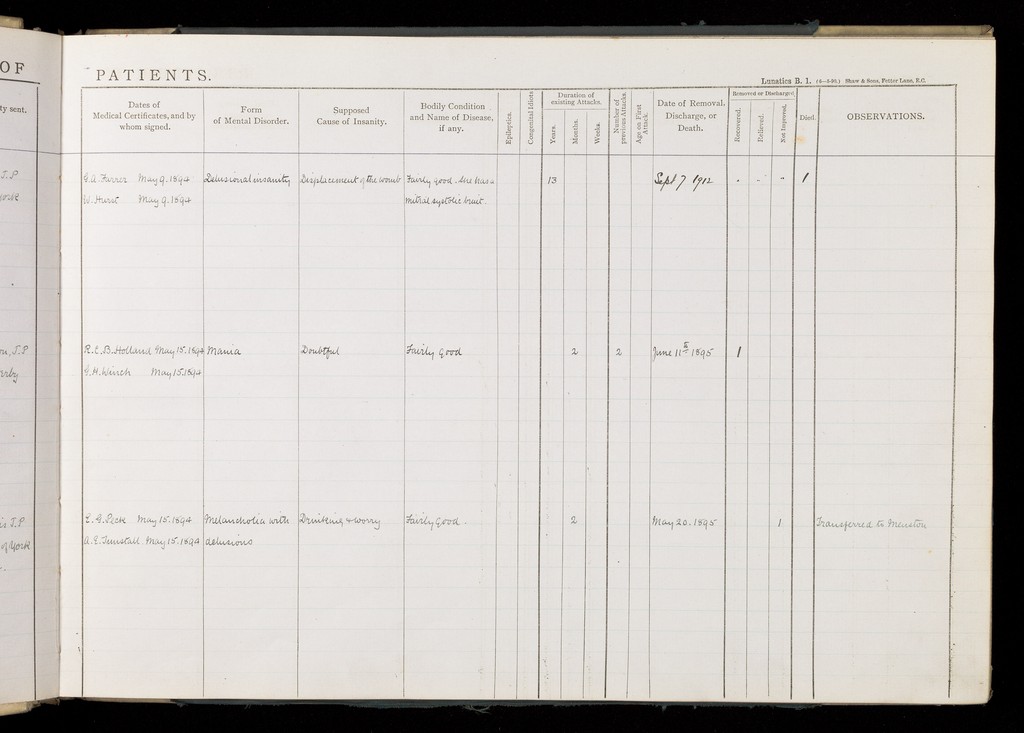 OF
PATIENTS.
Lunatics B. 1. (6—5-90.) Shaw & Sons, Fetter Lane, E.C.
ty sent.
Dates of
Medical Certificates, and by
whom signed.
Form
of Mental Disorder.
Supposed
Cause of Insanity.
Bodily Condition
and Name of Disease,
if any.
Epileptics.
Congenital Idiots
Duration of
existing Attacks.
Years.
Months.
Weeks.
Number of
previous Attacks.
Age on First
Attack.
Date of Removal,
Discharge, or
Death.
Removed or Discharged
Recovered.
Relieved.
Not Improved.
Died.
OBSERVATIONS.
J.P
G. A. Farrer May 9. 1894 Delusional insanity Displacement of the womb Fairly good. She has a 13 Sept 7 1912 - - - 1
W. Hurst May 9. 1894 mitral systolic bruit.
J.P
R. C. B. Holland May 15. 1894 Mania Doubtful Fairly good 2 2 June 11th 1895 1
G. H. Winch May 15. 1894
J.P
E. G. Peck May 15. 1894 Melancholia with Drinking & worry Fairly good 2 May 20. 1895 1 Transferred to Menston
of York A. E. Tunstall. May 15. 1894 delusions